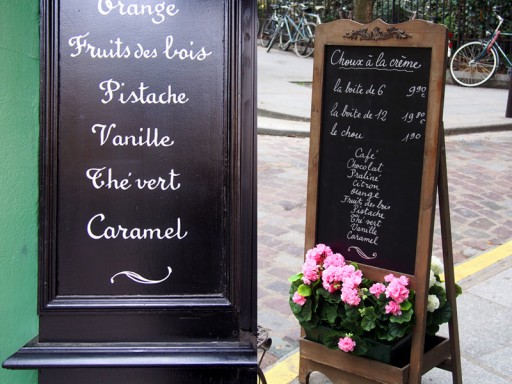 Orange
Fruits des bois
Pistache
Vanille
Thé vert
Caramel
Choux à la crème
la boite de 6 9,90€
la boite de 12 19,80€
le chou 1,90
Café
Chocolat
Praliné
Citron
Orange
Fruits des bois
Pistache
Thé vert
Vanille
Caramel